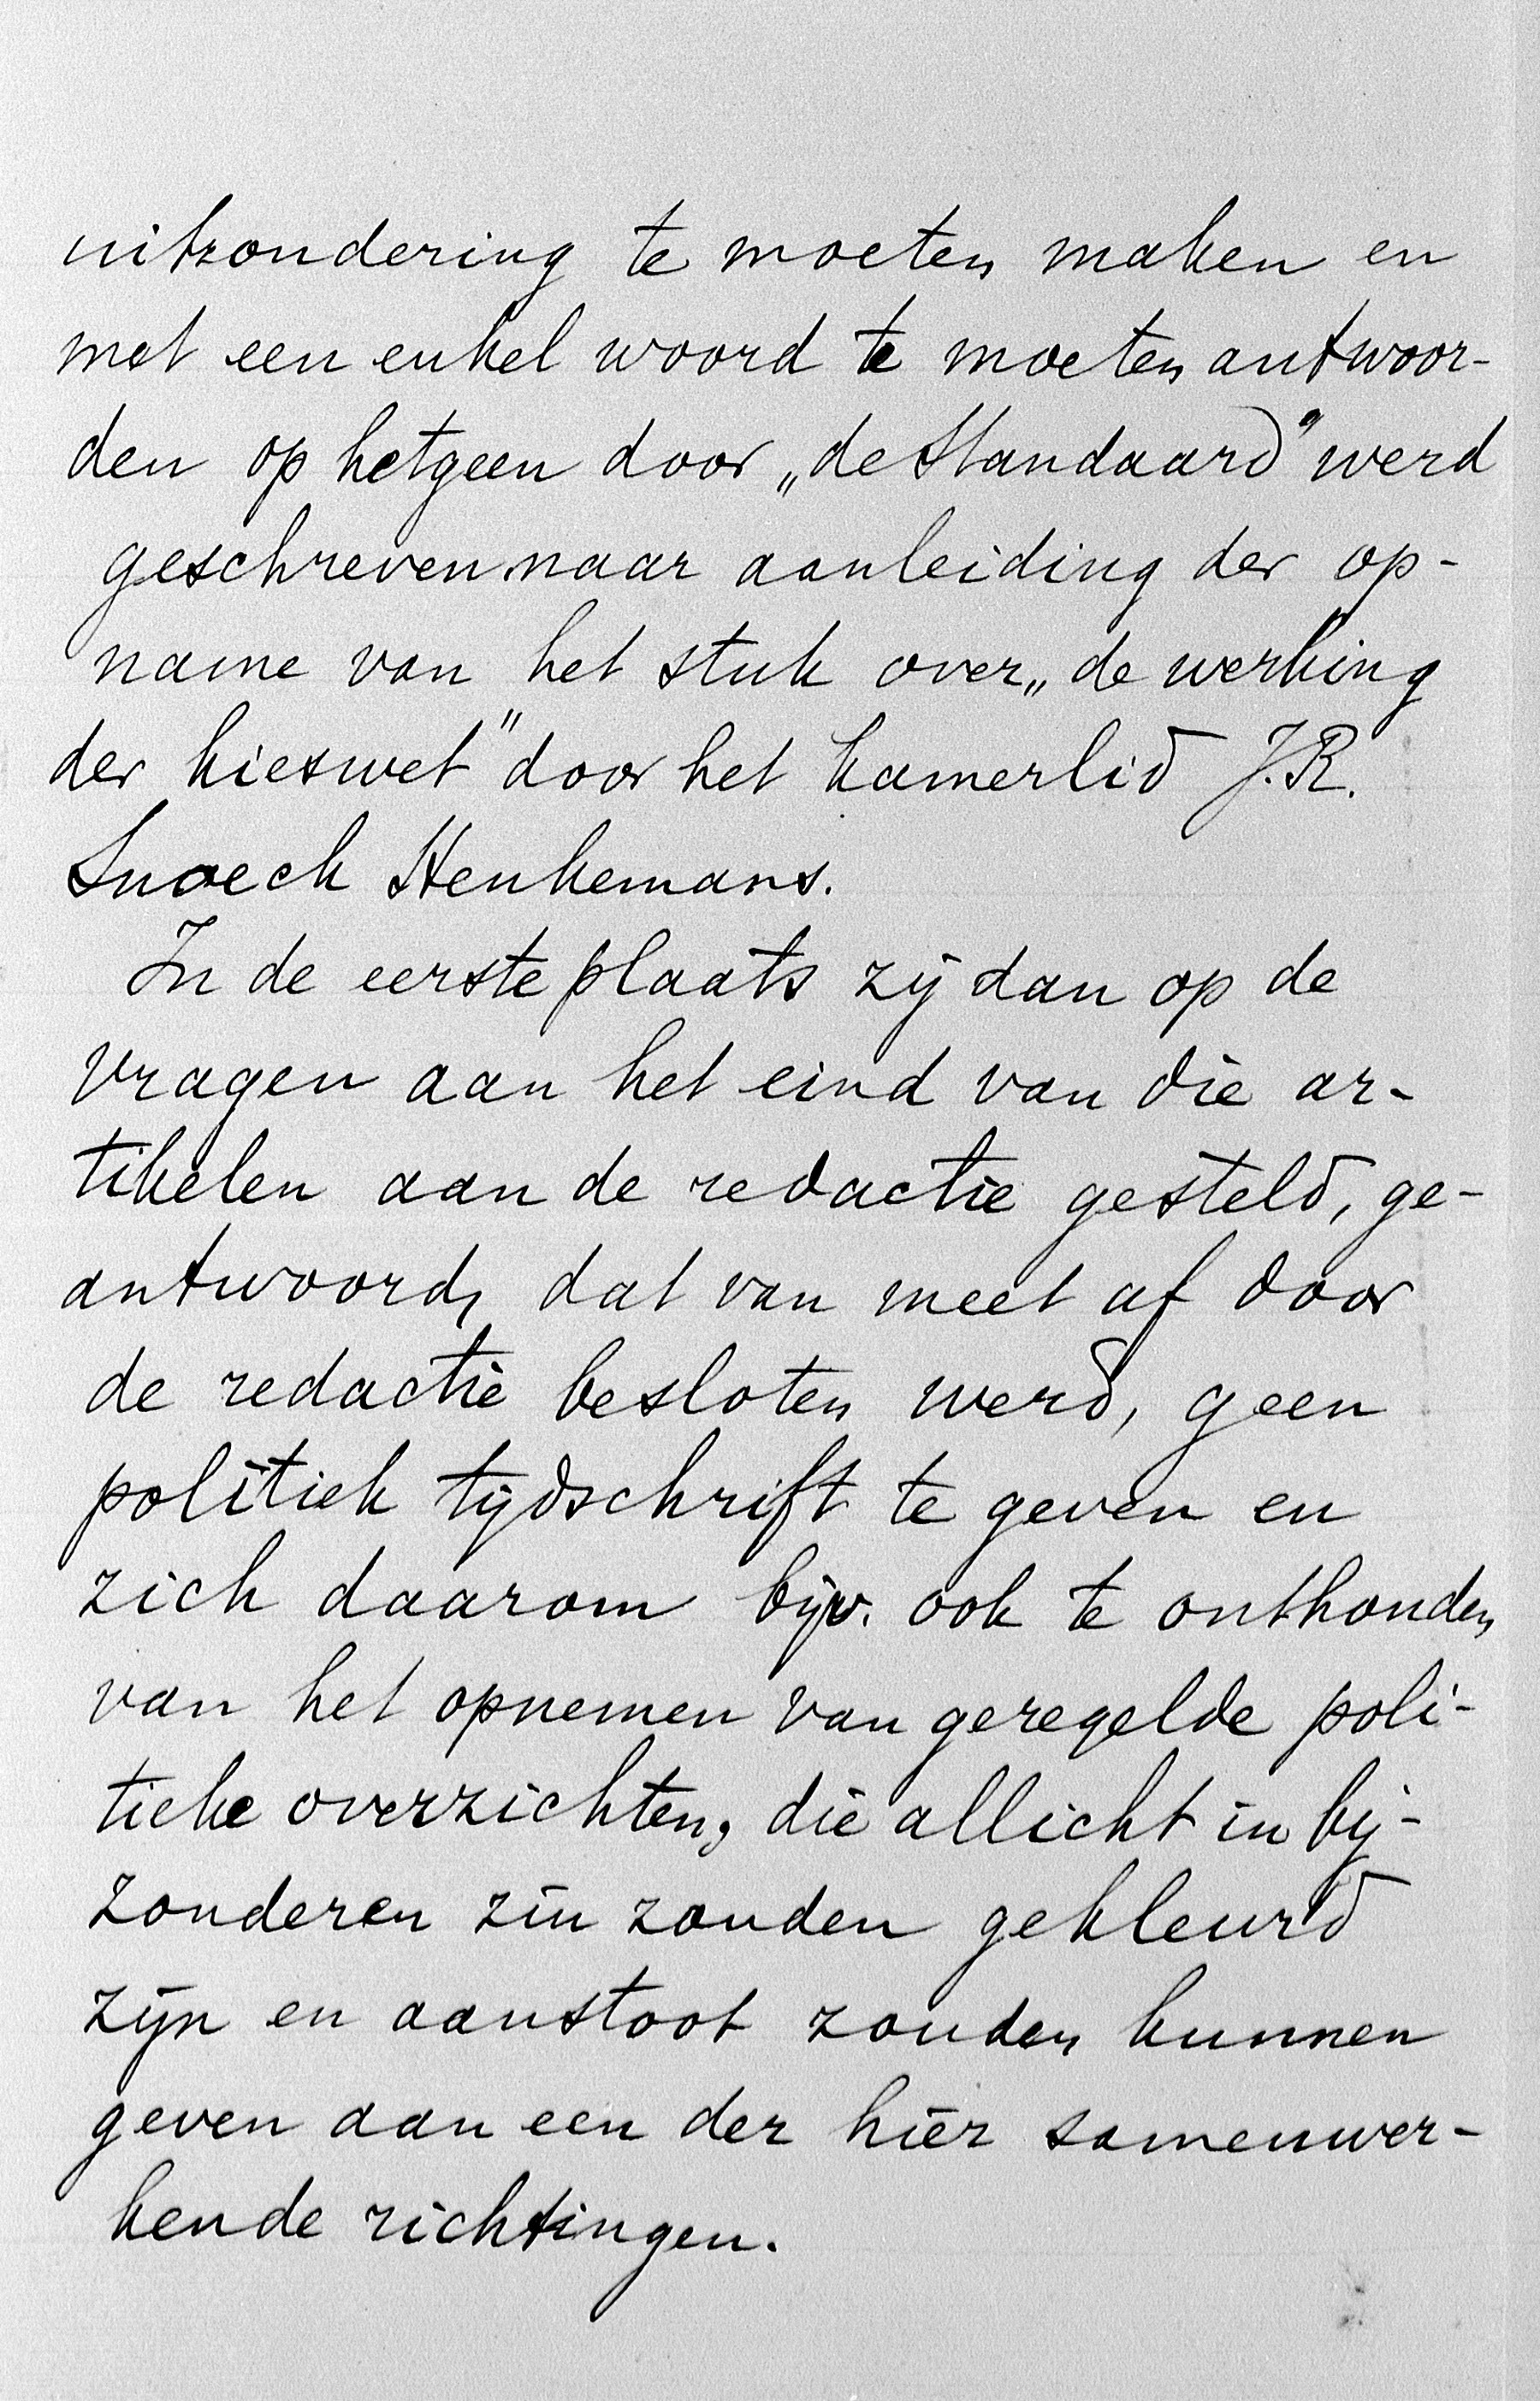 uitzondering te moeten maken en
met een enkel woord te moeten antwoor-
den op hetgeen door „de Standaard" werd
geschreven naar aanleiding der op-
name van het stuk over „de werking
der kieswet" door het kamerlid J.R.
Snoeck Henkemans.
In de eerste plaats zij dan op de
vragen aan het eind van die ar-
tikelen aan de redactie gesteld, ge-
antwoord, dat van meet af door
de redactie besloten werd, geen
politiek tijdschrift te geven en
zich daarom bijv. ook te onthouden
van het opnemen van geregelde poli-
tieke overzichten, die allicht in bij-
zonderen zin zouden gekleurd
zijn en aanstoot zouden kunnen
geven aan een der hier samenwer-
kende richtingen.